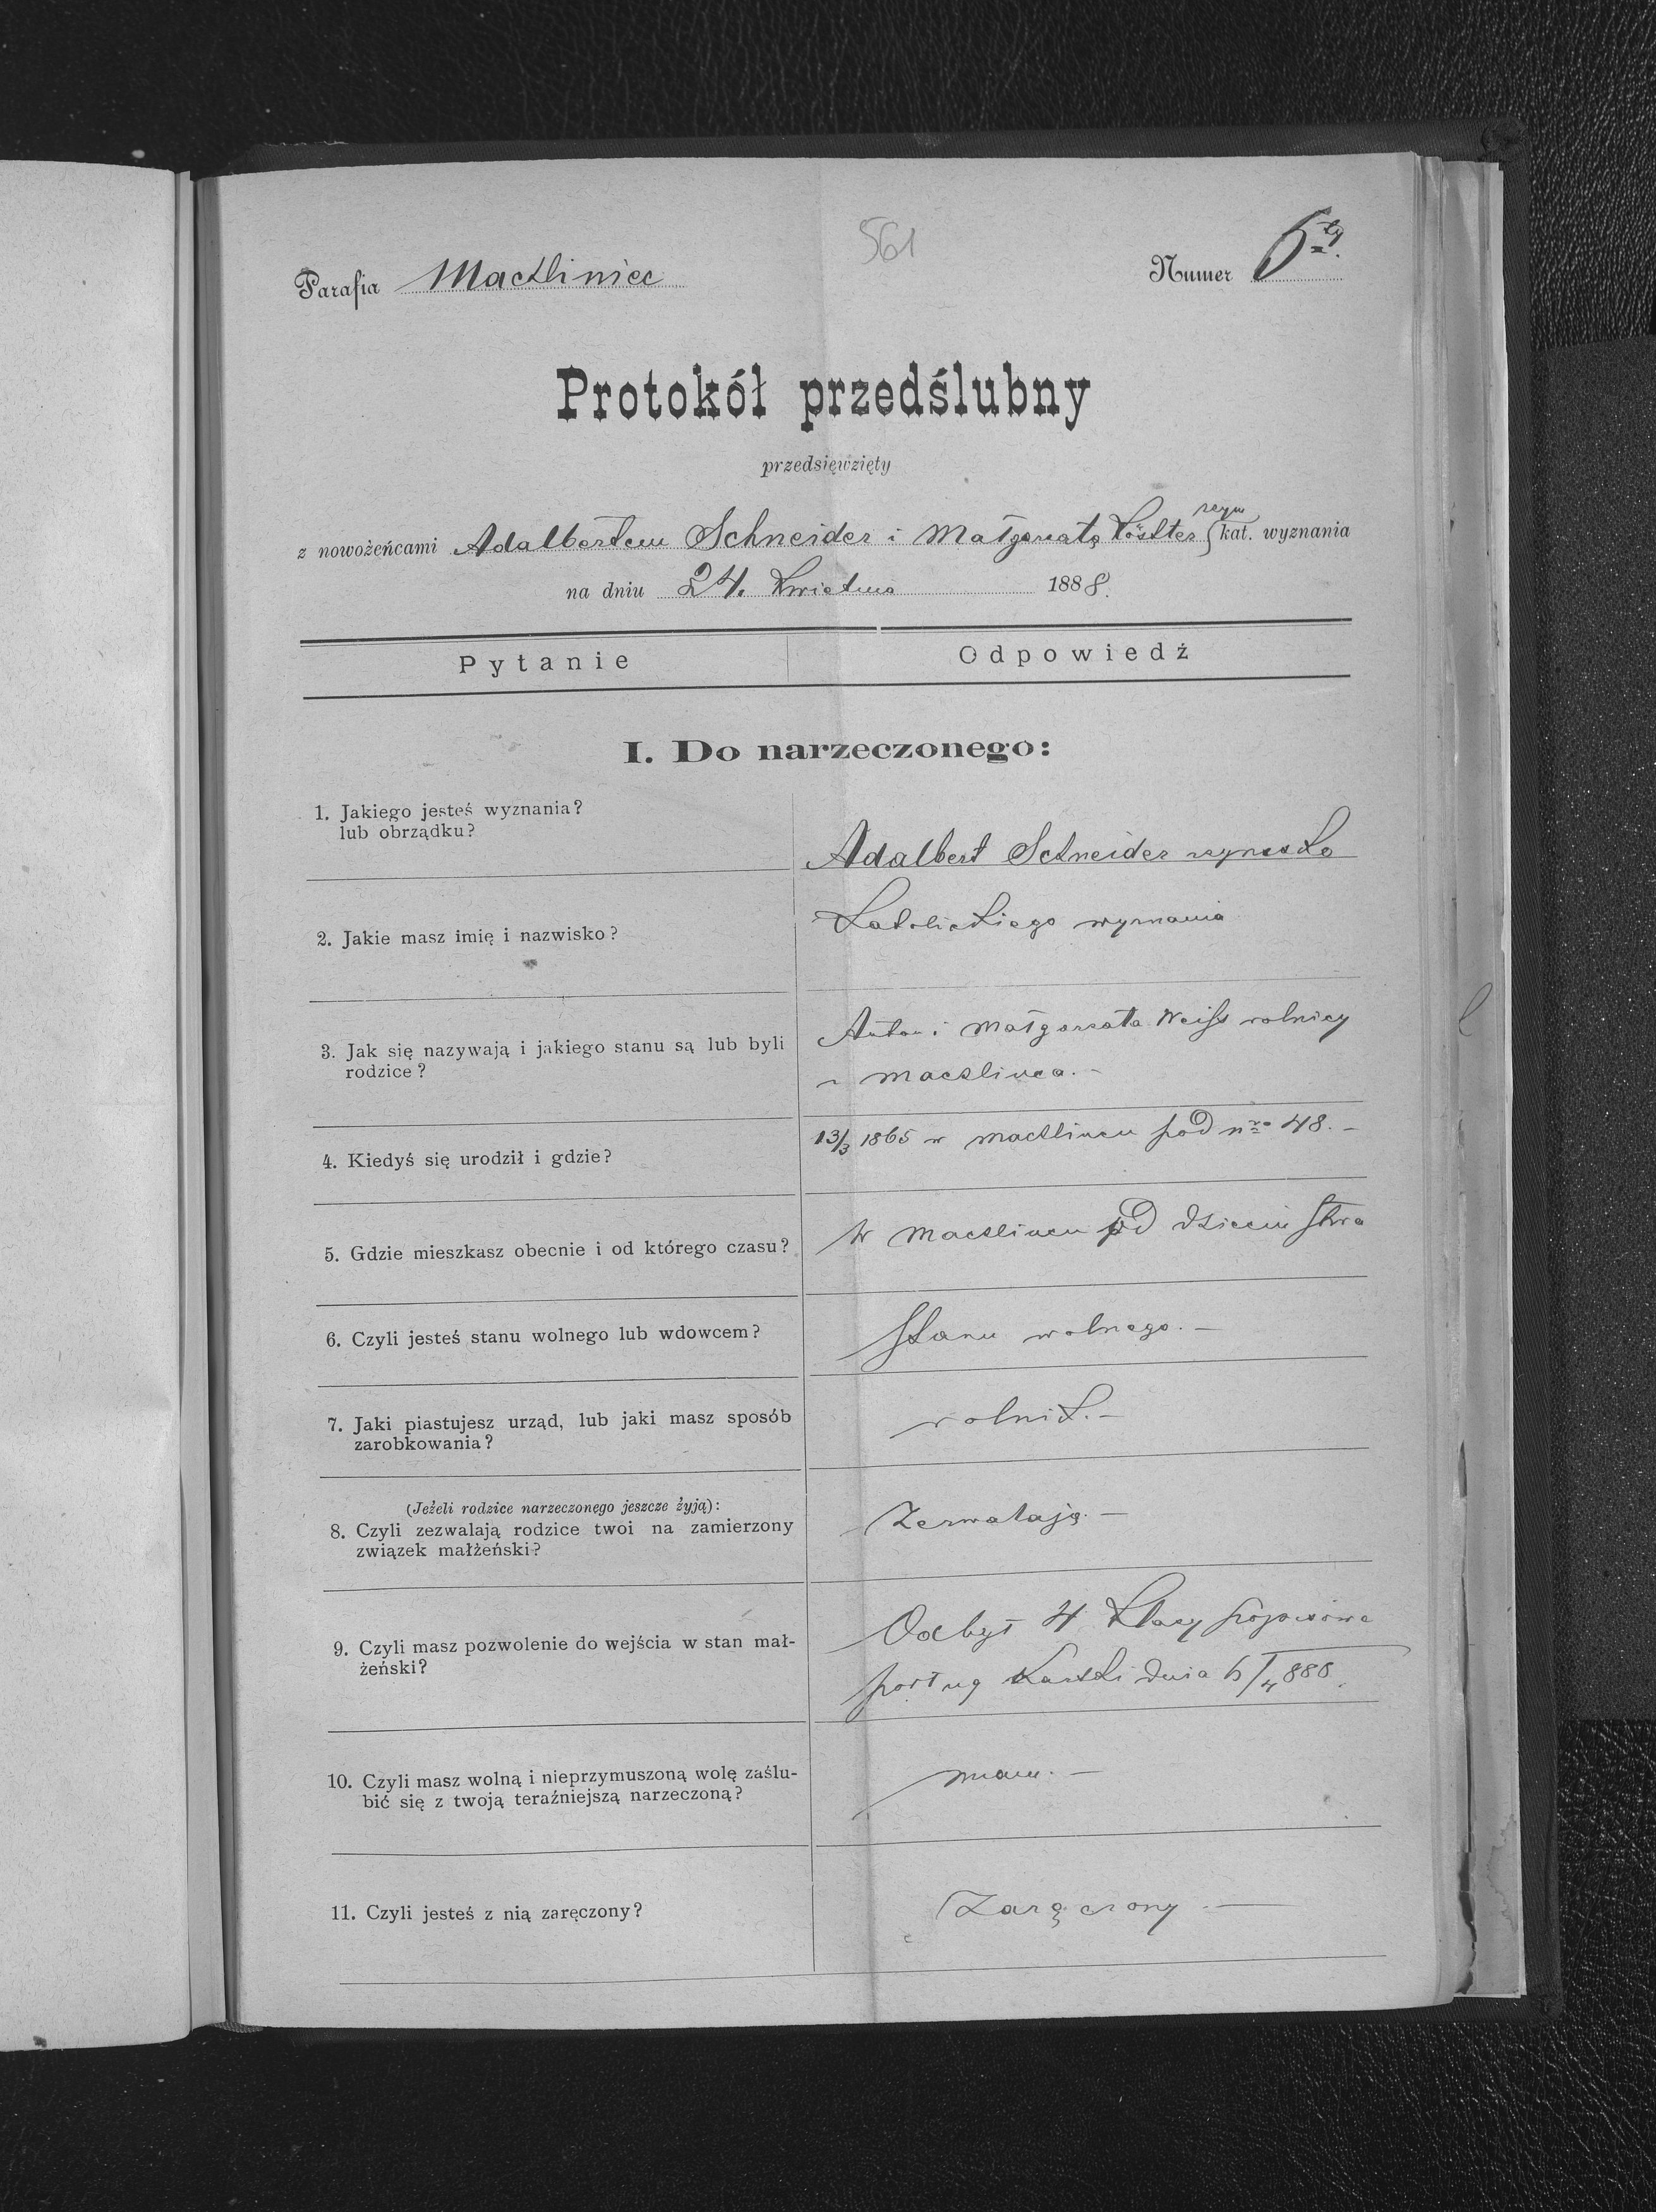 561
Parafia Machliniec
Numer 6ty.
Protokół przedślubny
przedsięwzięty
rzym
z nowożeńcami Adalbertem Schneider i Małgorzatą Köstler kat. wyznania
na dniu 24. Kwietnia 1888.
Pytanie Odpowiedź
I. Do narzeczonego:
1. Jakiego jesteś wyznania?
lub obrządku?
Adalbert Schneider rzymsko
2. Jakie masz imię i nazwisko?
Katolickiego wyznania
3. Jak się nazywają i jakiego stanu są lub byli
rodzice?
Anton i Małgorzata Weiss rolnicy
z Machlińca.-
4. Kiedyś się urodził i gdzie?
13/3 1865 w Machlińcu pod nro 48.-
5. Gdzie mieszkasz obecnie i od którego czasu?
W Machlińcu od dzieciństwa
6. Czyli jesteś stanu wolnego lub wdowcem?
Stanu wolnego.-
7. Jaki piastujesz urząd, lub jaki masz sposób
zarobkowania?
rolnik.-
(Jeżeli rodzice narzeczonego jeszcze żyją):
8. Czyli zezwalają rodzice twoi na zamierzony
związek małżeński?
Zezwalają.-
9. Czyli masz pozwolenie do wejścia w stan mał-
żeński?
Odbył 4 klasy
kartki dnia 6/4 888.
10. Czyli masz wolną i nieprzymuszoną wolę zaślu-
bić się z twoją teraźniejszą narzeczoną?
mam.-
11. Czyli jesteś z nią zaręczony?
Zaręczony.-